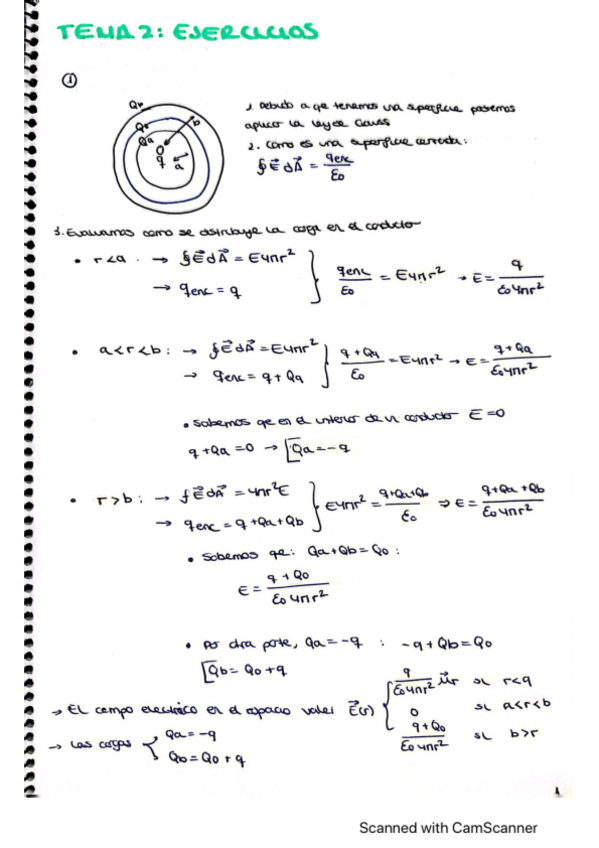 TEMA 2: EJERCICIOS
①
1. Debido a qe tenemos una superficie podemos
aplicar la ley de Gauss
2. Como es una superficie cerrada:
∮E⃗ dA⃗ = qenc/ε0
Qb
Qa
b
O
q
a
3. Evaluamos como se distribuye la carga en el conductor
• r<a : → ∮E⃗dA⃗ = E4πr²
→ qenc = q
} qenc/ε0 = E4πr² → E = q/ε04πr²
• a<r<b : → ∮E⃗dA⃗ = E4πr²
→ qenc = q + Qa
} q+Qa/ε0 = E4πr² → E = q+Qa/ε04πr²
• Sabemos qe en el interior de un conductor E=0
q+Qa=0 → Qa=-q
• r>b : → ∮E⃗dA⃗ = 4πr²E
→ qenc = q+Qa+Qb
} E4πr² = q+Qa+Qb/ε0 ⇒ E = q+Qa+Qb/ε04πr²
• Sabemos qe: Qa+Qb=Q0 :
E = q+Q0/ε04πr²
• Por otra parte, Qa=-q : -q+Qb=Q0
Qb=Q0+q
→ El campo electrico en el espacio vale: E⃗(r) { q/ε04πr² u⃗r si r<a
0 si a<r<b
q+Q0/ε04πr² si b>r
→ Las cargas { Qa=-q
Qb=Q0+q
1
Scanned with CamScanner